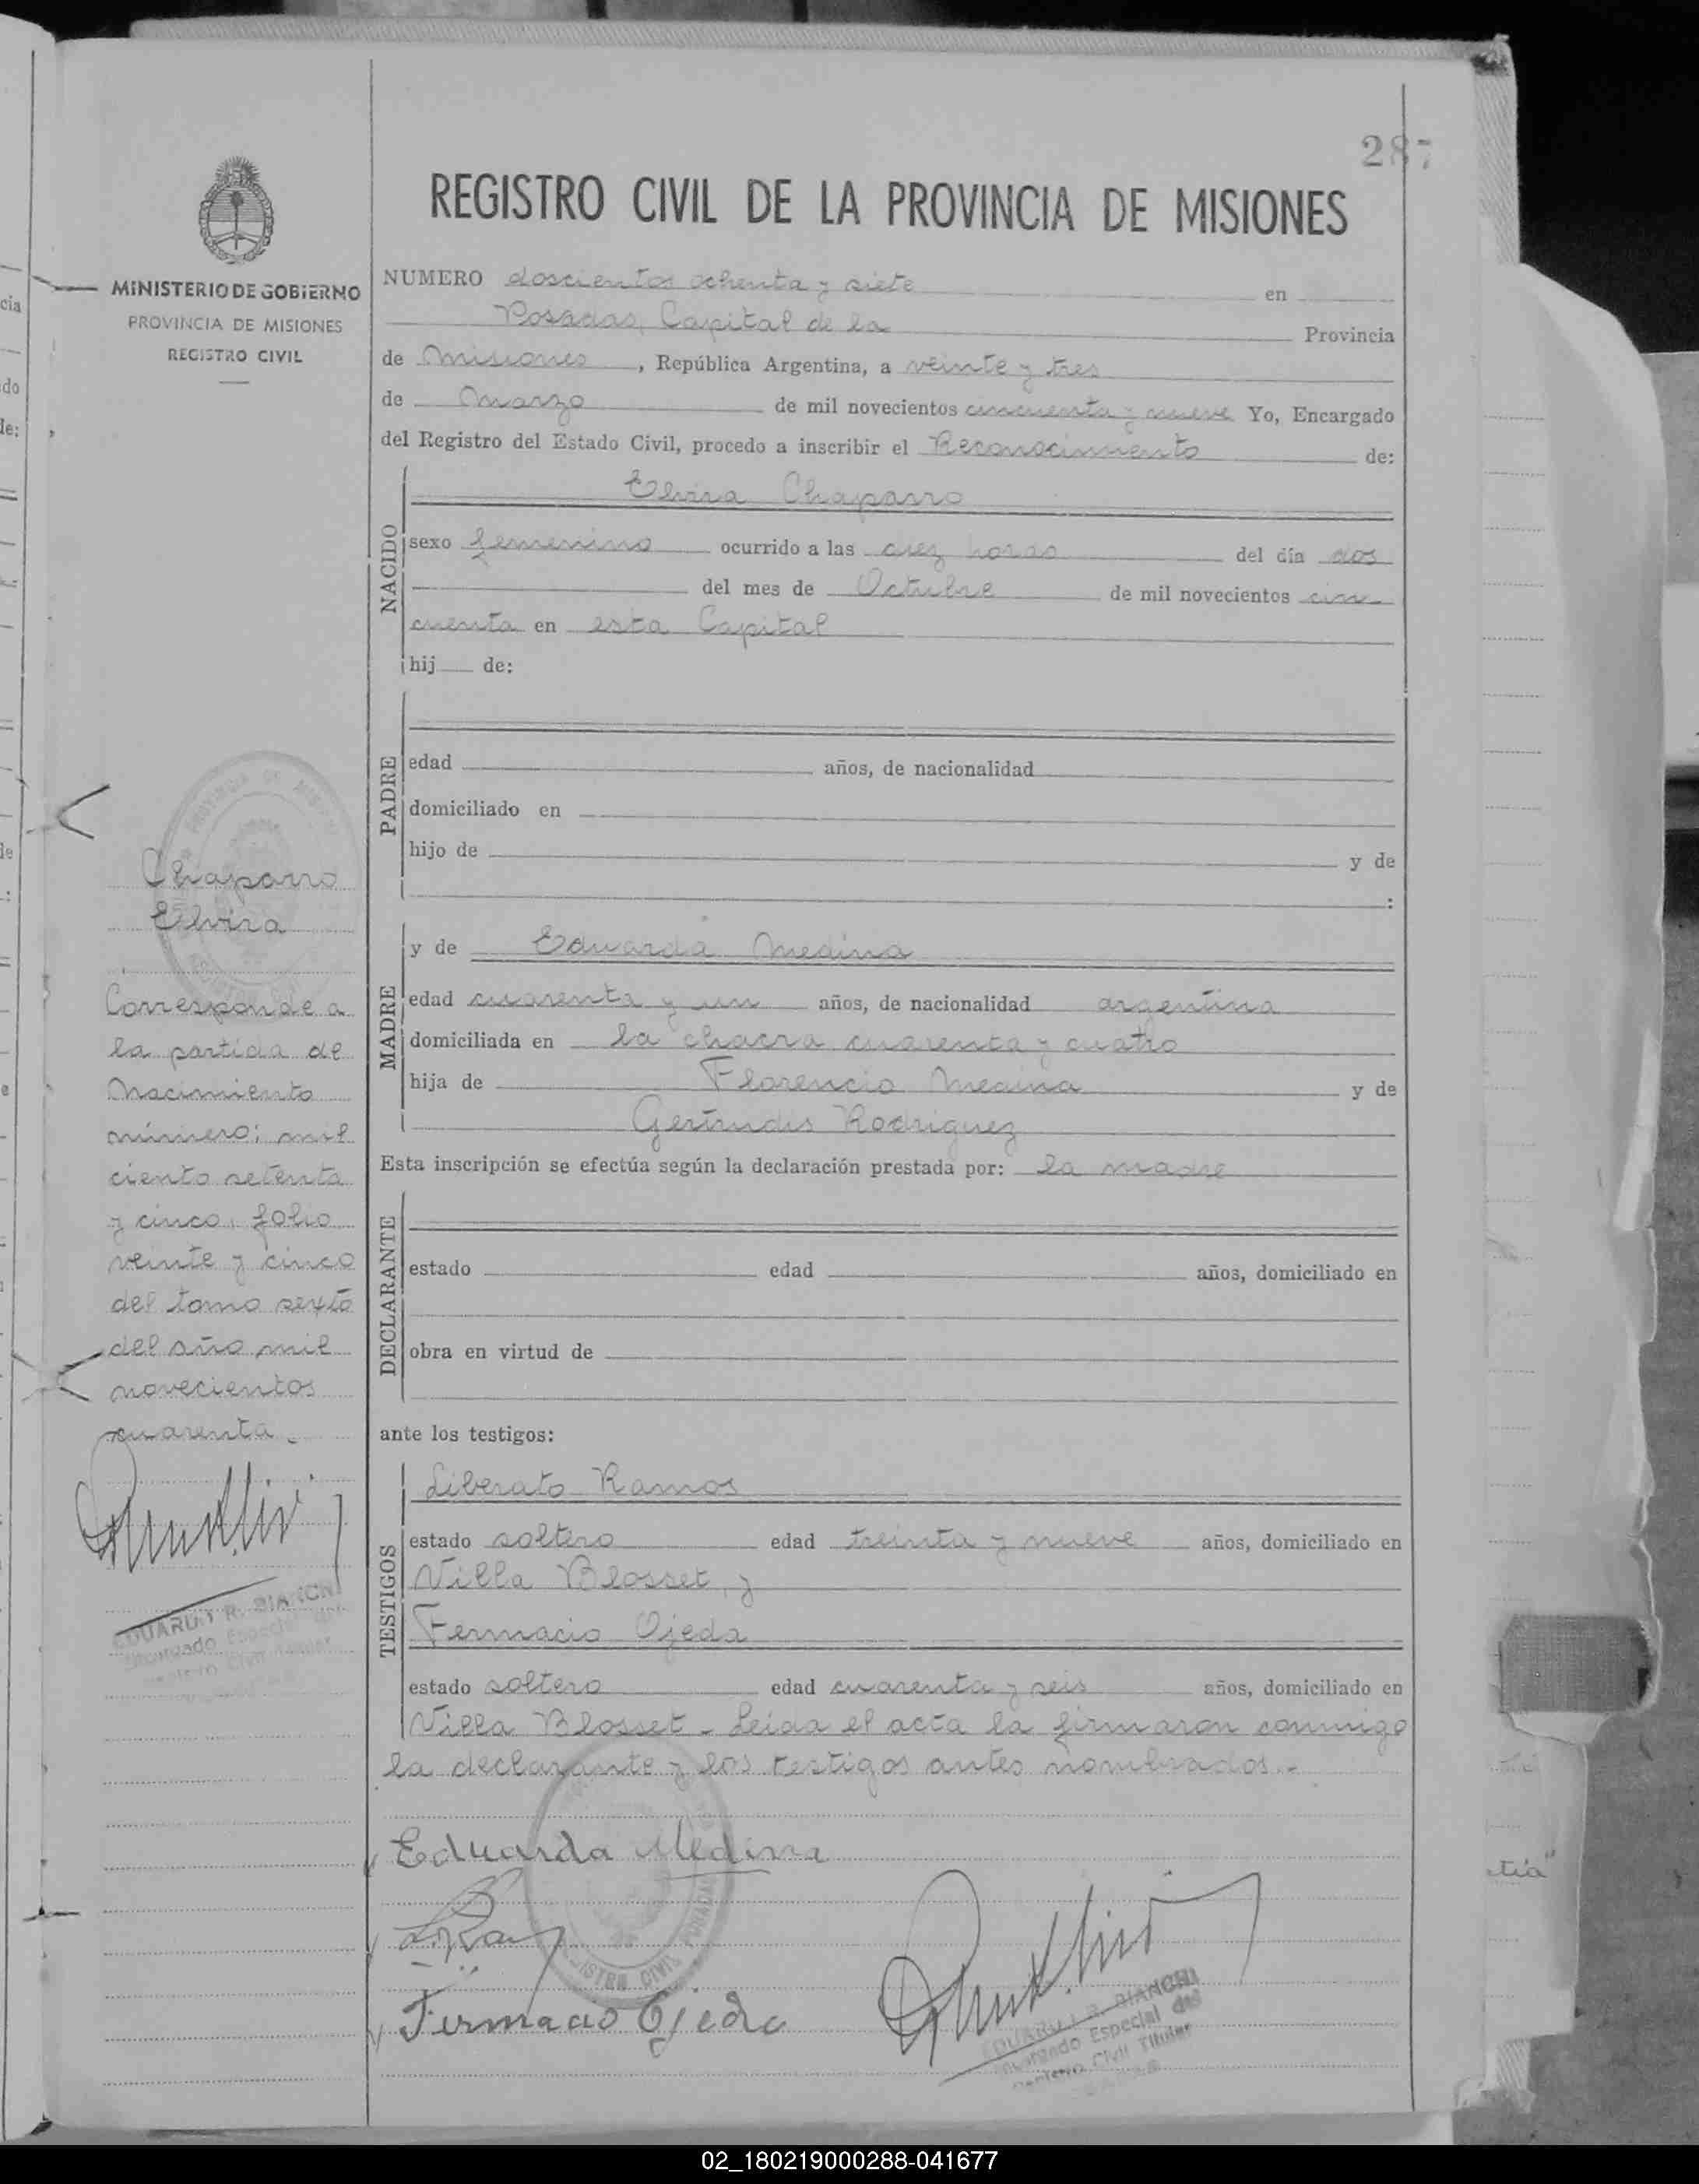 287
REGISTRO CIVIL DE LA PROVINCIA DE MISIONES
MINISTERIO DE GOBIERNO
PROVINCIA DE MISIONES
REGISTRO CIVIL
NUMERO doscientos ochenta y siete en
Posadas, Capital de la Provincia
de Misiones, República Argentina, a veinte y tres
de Marzo de mil novecientos cincuenta y nueve Yo, Encargado
del Registro del Estado Civil, procedo a inscribir el Reconocimiento de:
NACIDO
Elvira Chaparro
sexo femenino ocurrido a las diez horas del día dos
del mes de Octubre de mil novecientos cin
cuenta en esta Capital
hij de:
PADRE
edad años, de nacionalidad
domiciliado en
hijo de y de
:
MADRE
y de Eduarda Medina
edad cuarenta y un años, de nacionalidad argentina
domiciliada en la chacra cuarenta y cuatro
hija de Florencio Medina y de
Gertrudis Rodriguez
Esta inscripción se efectúa según la declaración prestada por: la madre
DECLARANTE
estado edad años, domiciliado en
obra en virtud de
ante los testigos:
TESTIGOS
Liberato Ramos
estado soltero edad treinta y nueve años, domiciliado en
Villa Blosset, y
Fermacio Ojeda
estado soltero edad cuarenta y seis años, domiciliado en
Villa Blosset - Leida el acta la firmaron conmigo
la declarante y los testigos antes nombrados.-
Eduarda Medina
Fermacio Ojeda
R. BIANCHI
Encargado Especial del
Registro Civil Titular
Chaparro
Elvira
Corresponde a
la partida de
Nacimiento
número: mil
ciento setenta
y cinco, folio
veinte y cinco
del tomo sexto
del año mil
novecientos
cuarenta.
EDUARDO R. BIANCHI
Encargado Especial del
Registro Civil Titular
02_180219000288-041677